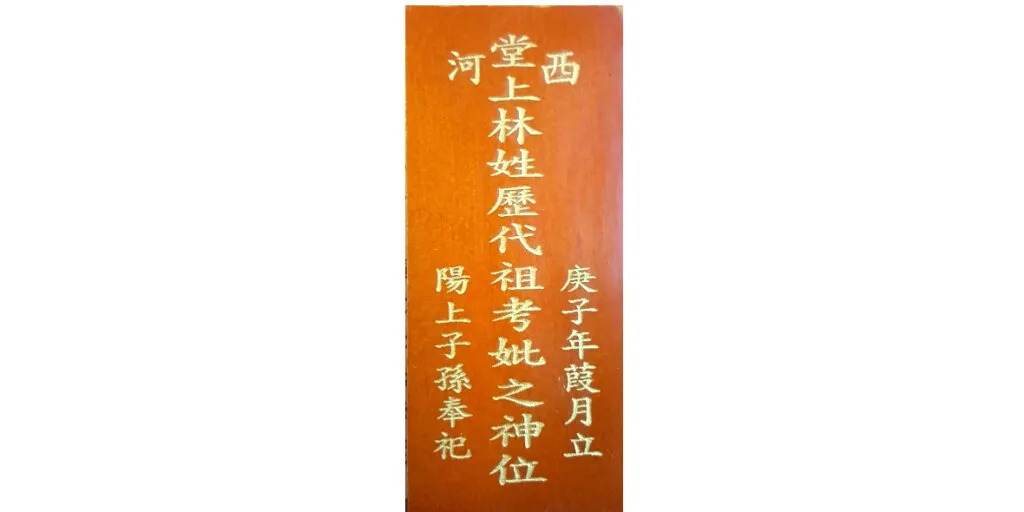 西河
堂上林姓歷代祖考妣之神位
庚子年葭月立
陽上子孫奉祀